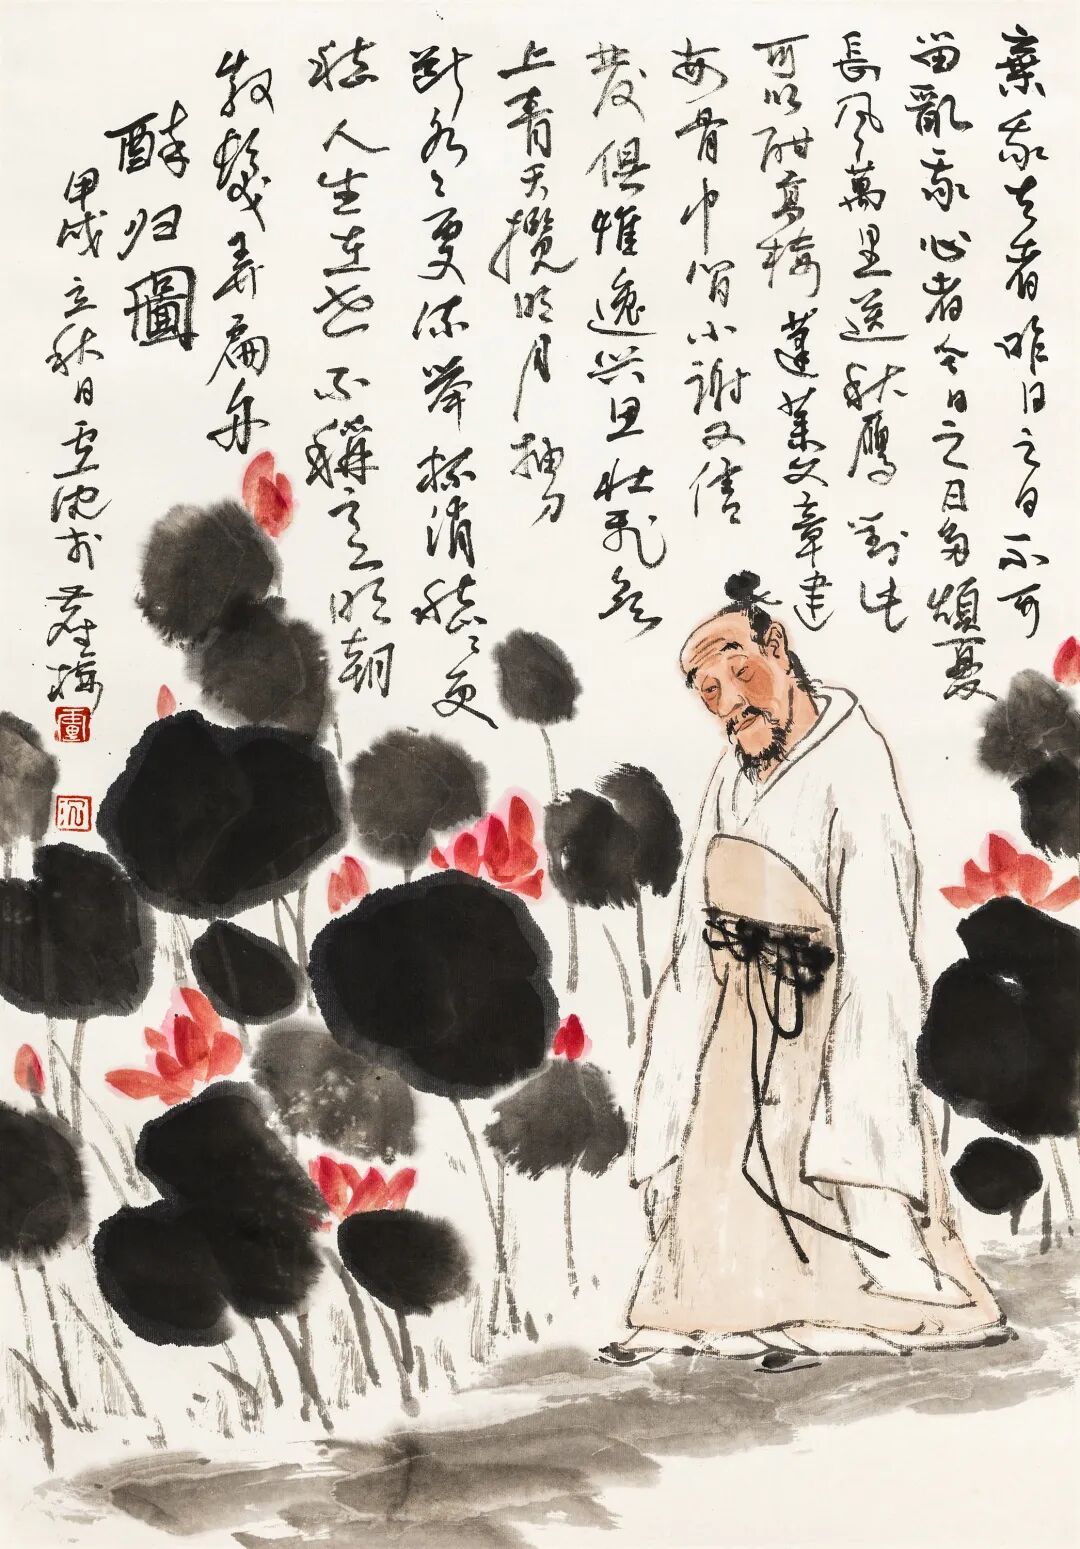 棄我去者昨日之日不可
留亂我心者今日之日多煩憂
長風萬里送秋鴈對此
可以酣高樓蓬萊文章建
安骨中间小謝又清
發俱懷逸兴思壮飛欲
上青天攬明月抽刀
断水〻更流舉杯消愁〻更
愁人生在世不稱意明朝
散髮弄扁舟
醉归圖
甲戌立秋日